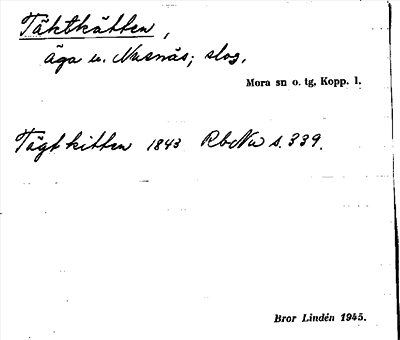 Täktkätten,
äga u. Nusnäs; slog.
Mora sn o. tg, Kopp. l.
Tägtkitten 1843 RbNu s. 339.
Bror Lindén 1945.